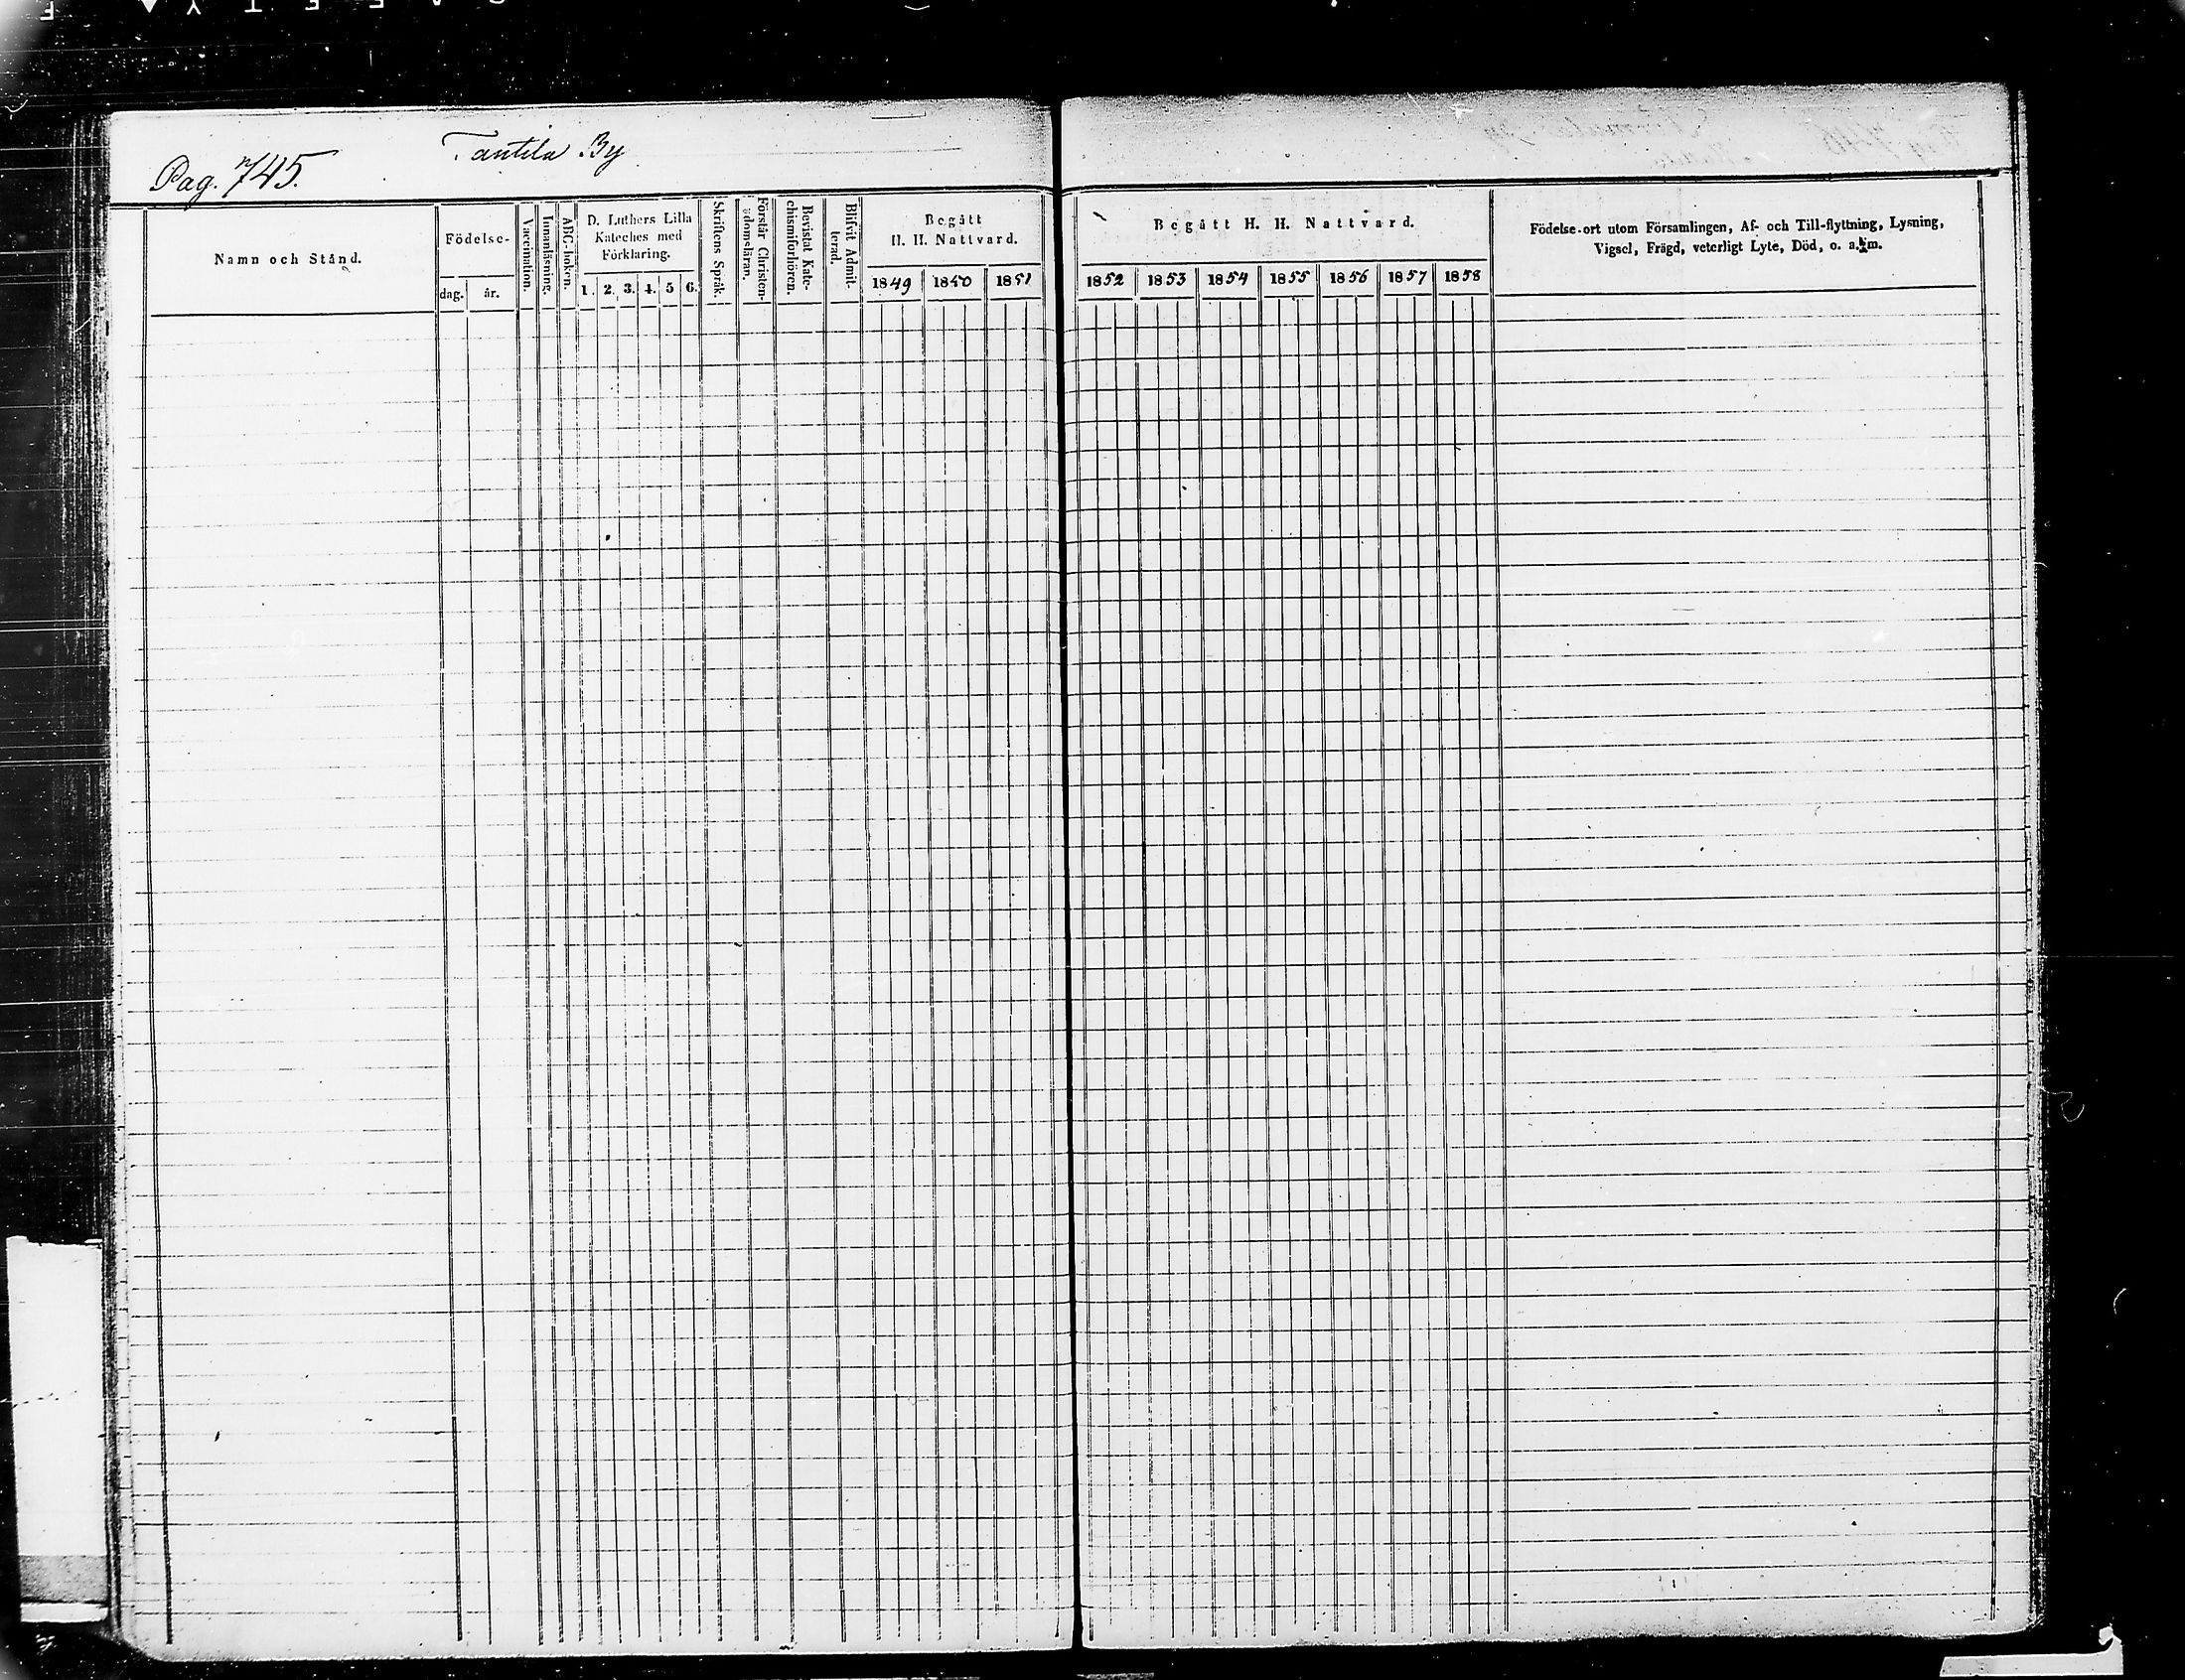 Pag. 745.
Tantila By
Namn och Stånd.
Födelse-
dag.
år.
Vaccination.
Innanläsning.
ABC-boken.
D. Luthers Lilla
Kateches med
Förklaring.
1. 2. 3. 4. 5 6.
Skriftens Språk.
Förstår Christen-
domsläran.
Bevistat Kate-
chismiförhören.
Blifvit Admit-
terad.
Begått
H. H. Nattvard.
1849 1850 1851
Begått H. H. Nattvard.
1852 1853 1854 1855 1856 1857 1858
Födelse-ort utom Församlingen, Af- och Till-flyttning, Lysning,
Vigsel, Frägd, veterligt Lyte, Död, o. a. m.